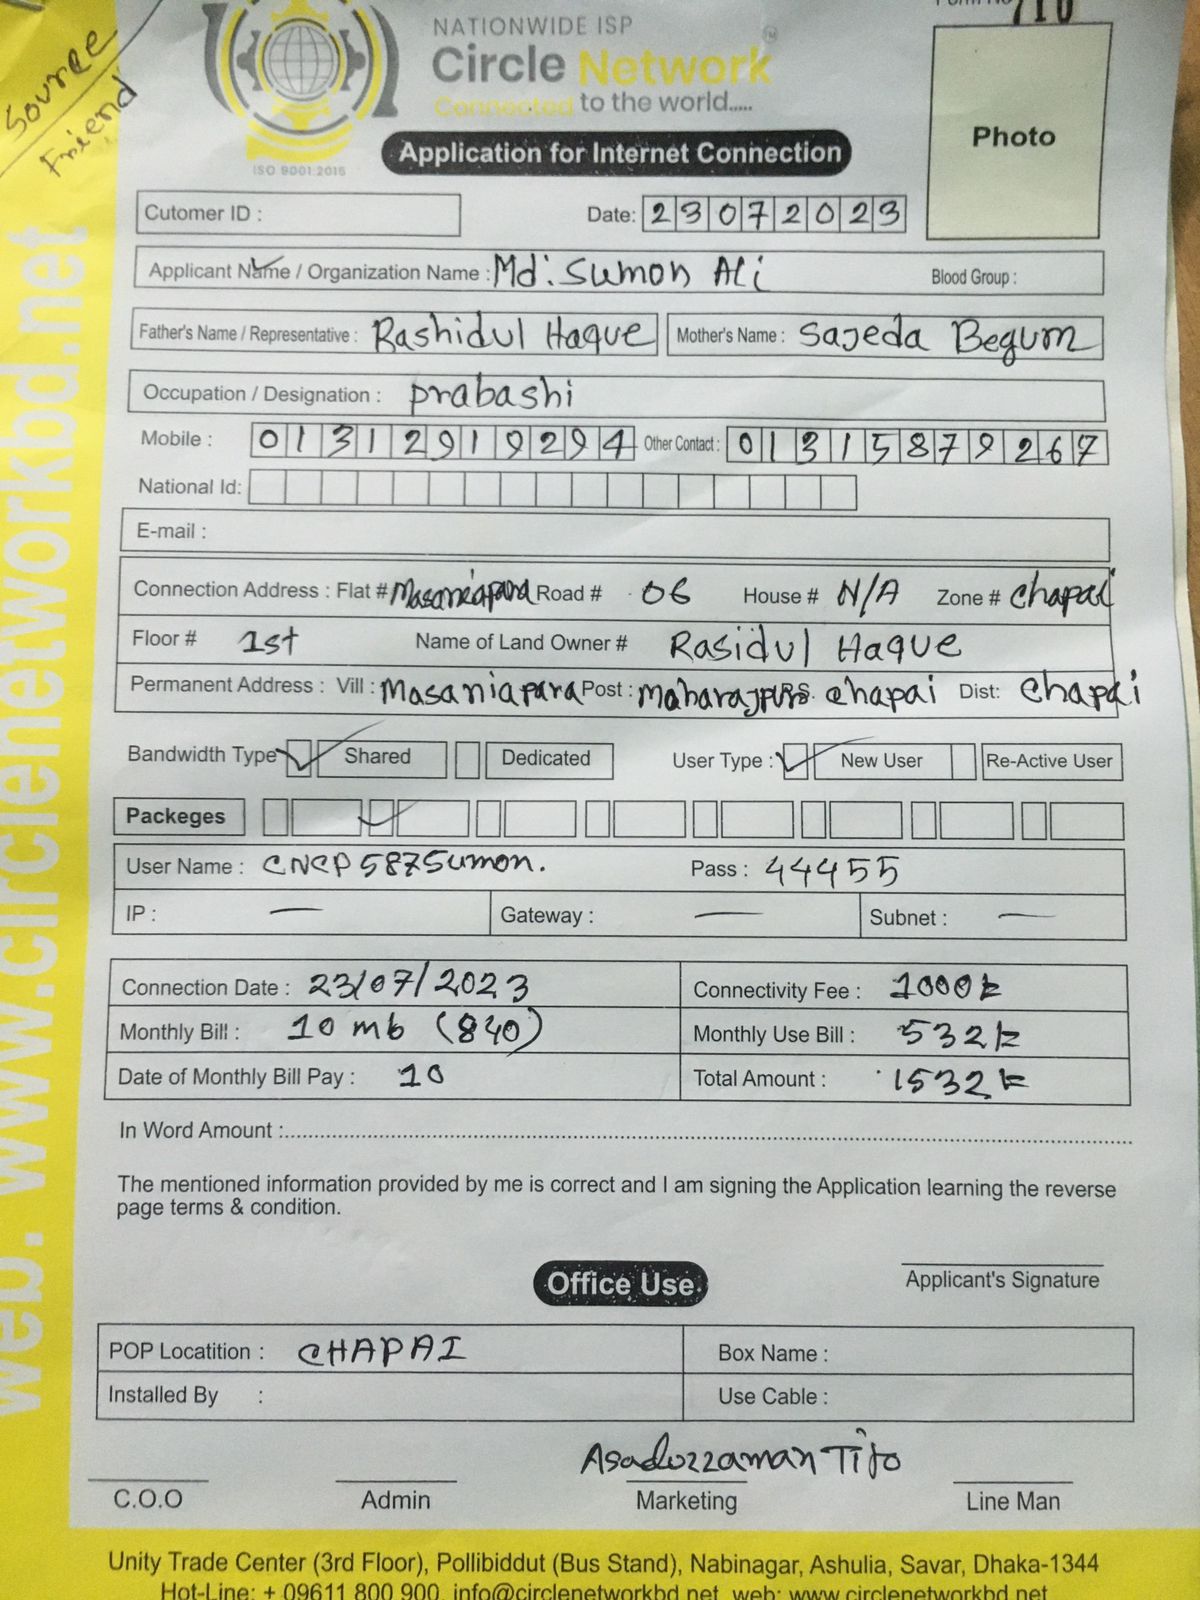 Source
Friend
710
NATIONWIDE ISP
Circle Network
Connected to the world.....
ISO 9001:2015
Application for Internet Connection
Photo
Cutomer ID :
Date: 23072023
Applicant Name / Organization Name : Md: Sumon Ali Blood Group :
Father's Name / Representative : Rashidul Haque Mother's Name : Sajeda Begum
Occupation / Designation : prabashi
Mobile : 01312919294 Other Contact : 01315879267
National Id:
E-mail :
Connection Address : Flat # Masaniapara Road # 06 House # N/A Zone # Chapai
Floor # 1st Name of Land Owner # Rasidul Haque
Permanent Address : Vill : Masaniapara Post : Maharajpur P.S. Chapai Dist: Chapai
Bandwidth Type Shared Dedicated User Type : New User Re-Active User
Packeges
User Name : CNCP587Sumon. Pass : 44455
IP : — Gateway : — Subnet : —
Connection Date : 23/07/2023 Connectivity Fee : 1000k
Monthly Bill : 10 mb (840) Monthly Use Bill : 532k
Date of Monthly Bill Pay : 10 Total Amount : 1532k
In Word Amount :
The mentioned information provided by me is correct and I am signing the Application learning the reverse
page terms & condition.
Applicant's Signature
Office Use
POP Locatition : CHAPAI Box Name :
Installed By : Use Cable :
Asaduzzaman Tito
C.O.O Admin Marketing Line Man
Unity Trade Center (3rd Floor), Pollibiddut (Bus Stand), Nabinagar, Ashulia, Savar, Dhaka-1344
Hot-Line: + 09611 800 900, info@circlenetworkbd.net, web: www.circlenetworkbd.net
web: www.circlenetworkbd.net